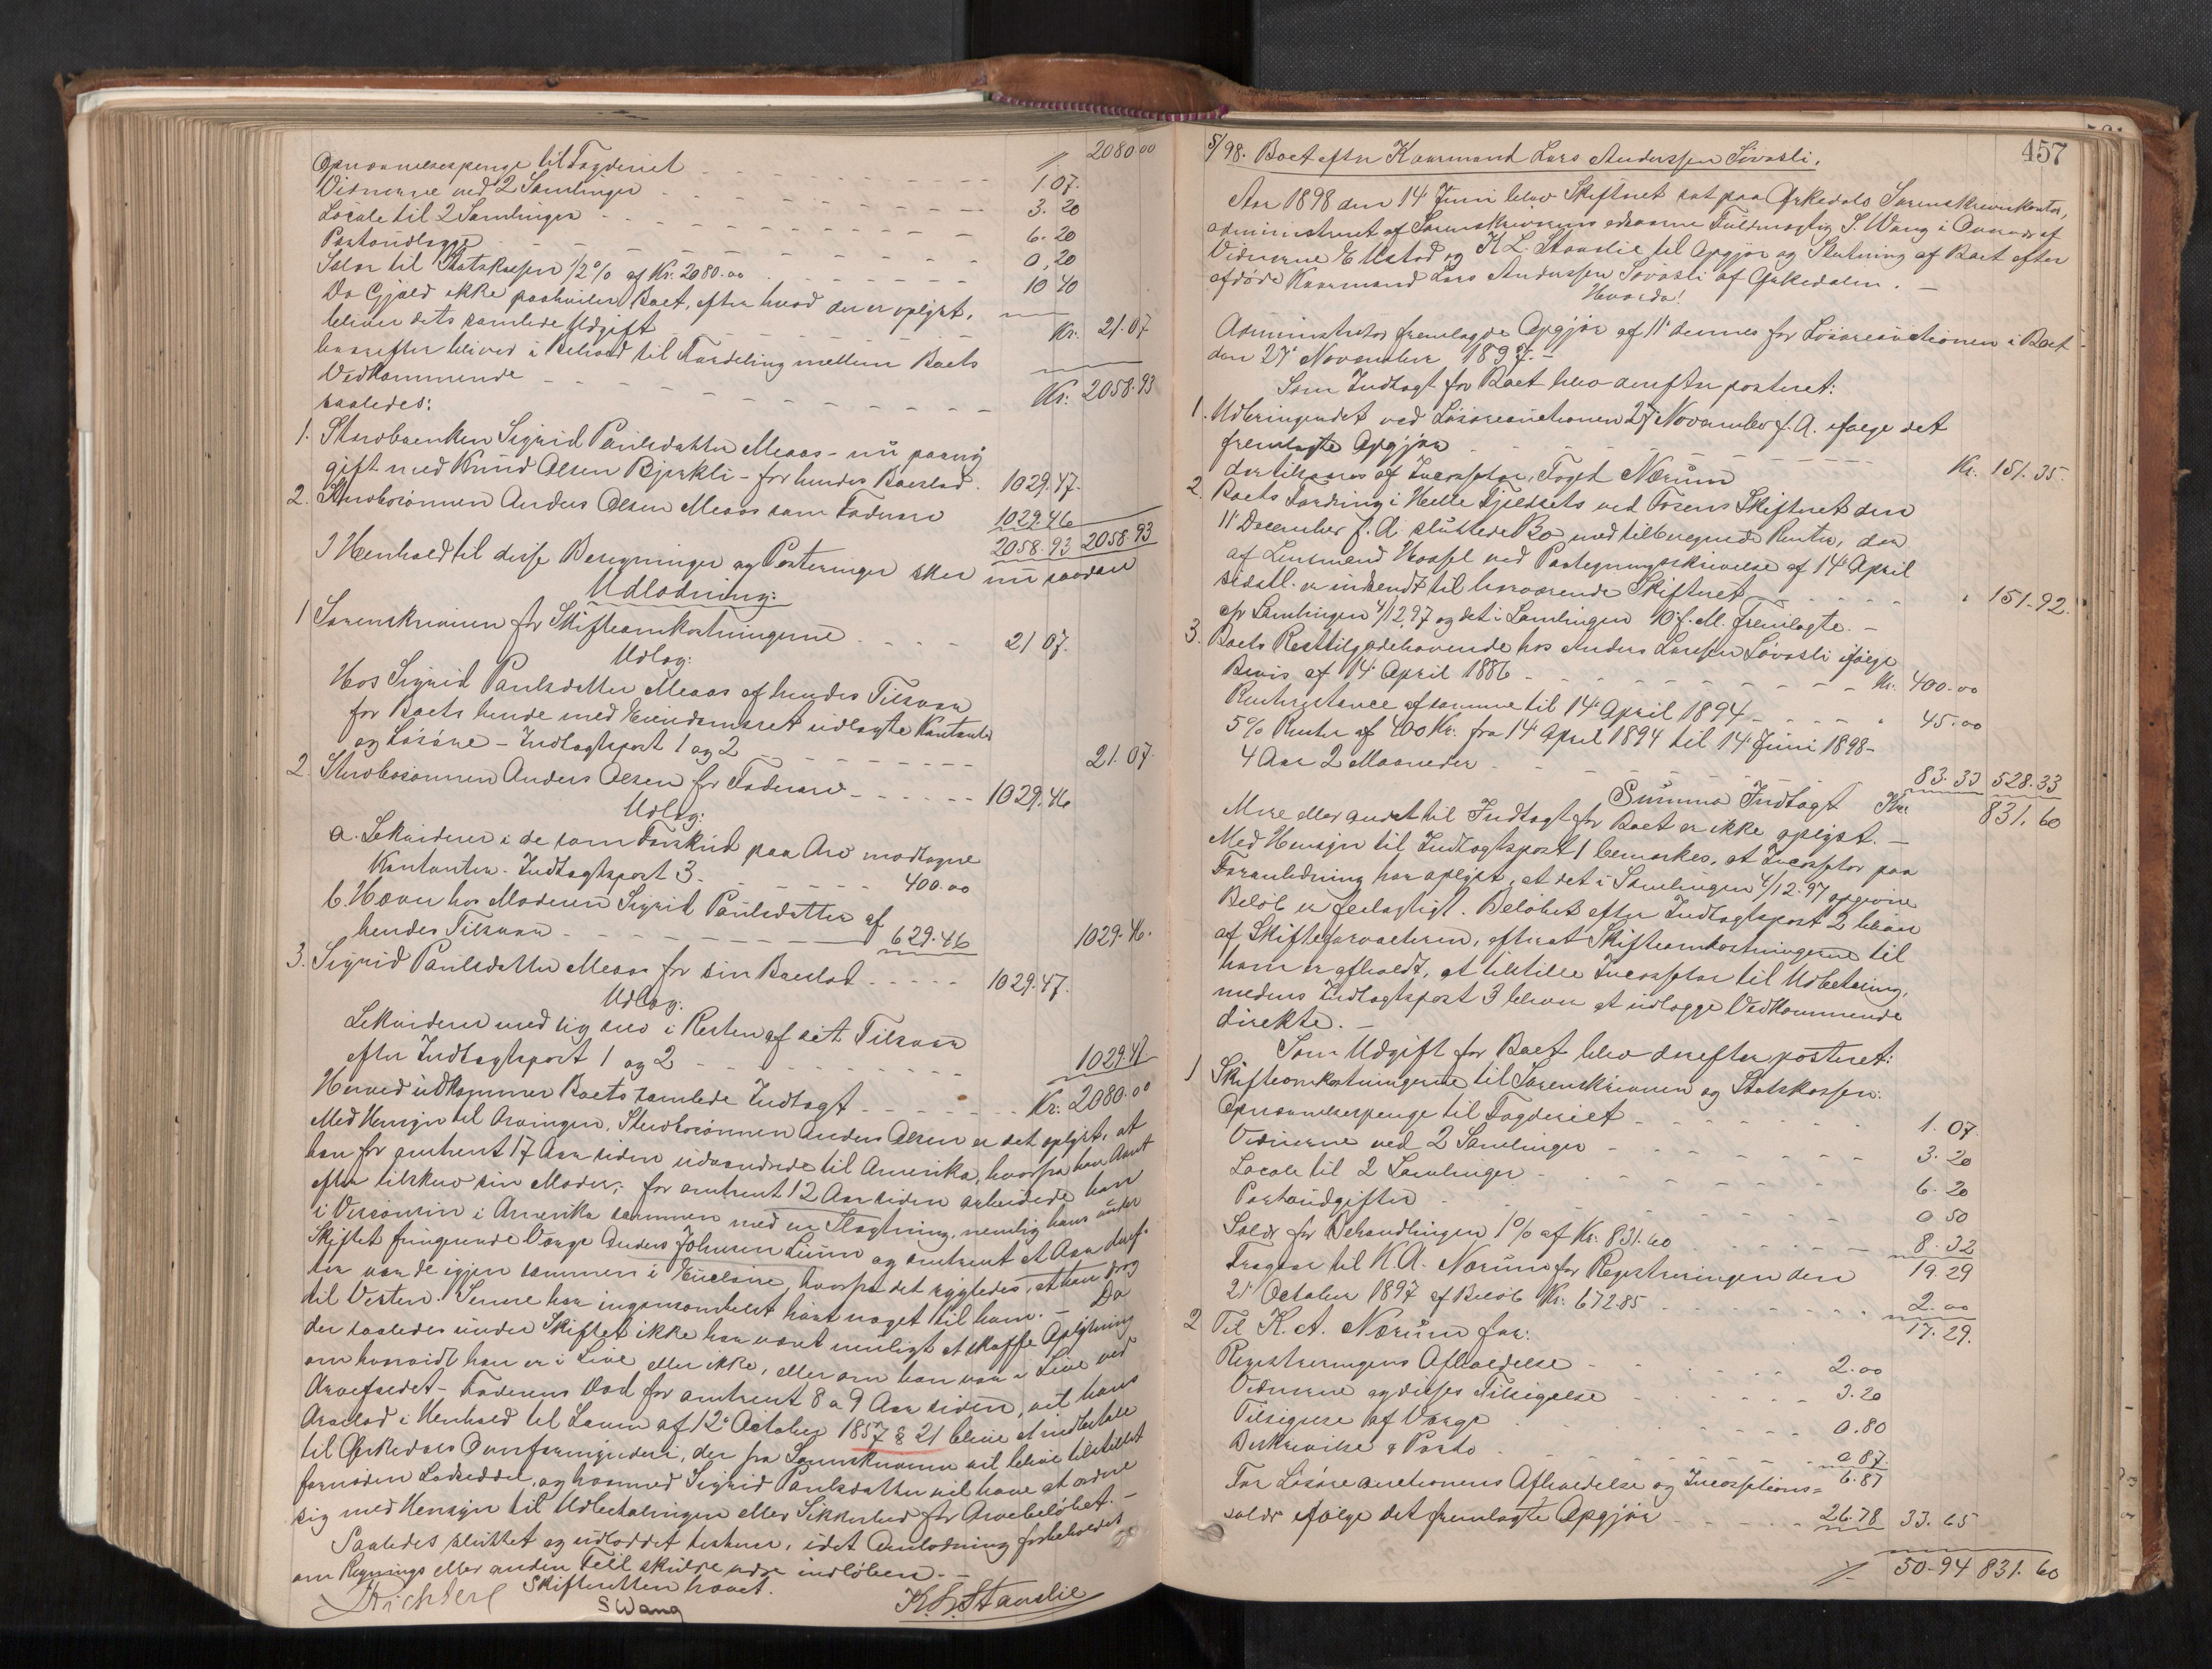 ⁒ 2080.00
Opnævnelsespenge til Fogderiet 1.07.
Vidnerne ved 2 Samlinger 3.20
Locale til 2 Samlinger 6.20
Portoudlægge 0,20
Salær til Statskassen 1/2 % af Kr. 2080.00 10 40
Da Gjæld ikke paahviler Boet, efter hvad der er oplyst,
bliver dets samlede Udgift Kr. 21.07
hvorefter bliver i Behold til Fordeling mellem Boets
Vedkommende Kr. 2058.93
saaledes:
1. Stervboenken Sigrid Paulsdatter Meaas - nu paany
gift med Knud Olsen Bjerkli - for hendes Boeslod. 1029.47.
2. Stervbosønnen Anders Olsen Meaas som Fadersarv 1029.46
2058.93 2058.93
I Henhold til disse Beregninger og Posteringer sker nu saadan
Udlodning:
1 Sorenskriveren for Skifteomkostningerne 21 07.
Udlæg:
Hos Sigrid Paulsdatter Meaas af hendes Tilsvar
for Boets hende med Eiendomsret udlagte Kontanter
og Løsøre - Indtægtspost 1 og 2 21.07.
2. Stervbosønnen Anders Olsen for Fadersarv 1029.46
Udlæg:
a. Likviderer i de som Forskud paa Arv modtagne
Kontanter. Indtægtspost 3. 400.00
b. Hæver hos Moderen Sigrid Paulsdatter af
hendes Tilsvar 629.46 1029.46.
3. Sigrid Paulsdatter Meaas for sin Boeslod 1029.47.
Udlæg:
Likviderer med sig selv i Resten af sit Tilsvar
efter Indtægtspost 1 og 2 1029.47
Herved udkommer Boets samlede Indtægt Kr. 2080.00
Med Hensyn til Arvingen, Stervbosønnen Anders Olsen er det oplyst, at
han for omtrent 17 Aar siden udvandrede til Amerika, hvorfra han
efter tilskrev sin Moder; for omtrent 12 Aar siden arbeidede han
i Visconsin i Amerika sammen med en Slægtning, nemlig hans under
Skiftet fungerende Værge Anders Johnsen Linn og omtrent et Aar deref-
ter var de igjen sammen i hvorfra det rygtedes, at han drog
til Vesten. Senere har ingensomhelst hørt noget til ham. - Da
der saaledes under Skiftet ikke har været muligt at skaffe Oplysning
om hvorvidt han er i Live eller ikke, eller om han var i Live ved
Arvefaldet - Faderens Død for omtrent 8 a 9 Aar siden, vil hans
Arvelod i Henhold til Loven af 12te October 1857 § 21 blive at indbetale
til Ørkedals Overformynderi, der fra Sorenskriveren vil blive tilstillet
fornøden Lodseddel, og hvormed Sigrid Paulsdatter vil have at ordne
sig med Hensyn til Udbetalingen eller Sikkerhed for Arvebeløbet. -
Saaledes sluttet og udloddet herhen, idet Omlodning forbeholdes
om Regnings eller anden Feil skulde være indløben. -
Skifteretten hævet.
S Wang
K. L. Stavslie
457
5/98. Boet efter Kaarmand Lars Anderssen Løvaasli.
Aar 1898 den 14 Juni blev Skifteret sat paa Ørkedals Sorenskriverkontor,
administreret af Sorenskriverens edsvorne Fuldmægtig S. Wang i Overvær af
Vidnerne E Ustad og K L. Stavslie til Opgjør og Slutning af Boet efter
afdøde Kaarmand Lars Anderssen Løvaasli af Ørkedalen. -
Hvorda!
Administrator fremlagde Opgjør af 11' dennes for Løsøreauctionen i Boet
den 27' November 1897. -
Som Indtægt for Boet blev derefter posteret:
1. Udbringendet ved Løsøreauctionen 27' November f. A. ifølge det
fremlagte Opgjør Kr. 151.35.
der tilsvares af Incassator, Foged Nærum
2. Boets Fordring i Helle Fjeldsets ved Fosens Skifteret den
11' December f. A. sluttede Bo med tilberegnede Renter, der
af Lensmand Hoassel ved Paategningsskrivelse af 14' April
sidstl. er indsendt til herværende Skifteret " 151.92.
cfr Samlingen 4/12.97 og det i Samlingen 10' f. M. fremlagte. -
3. Boets Resttilgodehavende hos Anders Larssen Løvaasli ifølge
Bevis af 14' April 1886 Kr. 400.00
Renterestance af samme til 14' April 1894 " 45.00
5% Renter af 400 Kr. fra 14' April 1894 til 14' Juni 1898 -
4 Aar 2 Maaneder 83.33 528.33
Summa Indtægt Kr. 831.60
Mere eller andet til Indtægt for Boet er ikke oplyst. -
Med Hensyn til Indtægtspost 1 bemærkes, at Incassator paa
Foranledning har oplyst, at det i Samlingen 4/12-97 opgivne
Beløb er feilagtigt. Beløbet efter Indtægtspost 2 bliver
af Skifteforvalteren, efterat Skifteomkostningerne til
ham er afholdt, at tilstille Incassator til Udbetaling,
medens Indtægtspost 3 bliver at udlægge Vedkommende
direkte. -
Som Udgift for Boet blev derefter posteret:
1 Skifteomkostningerne til Sorenskriveren og Statskassen:
Opnævnelsespenge til Fogderiet 1.07
Vidnerne ved 2 Samlinger 3.20
Locale til 2 Samlinger 6.20
Portoudgifter 0 50
Salær for Behandlingen 1% af Kr. 831.60 8.32
19.29
Fragaar til K. A. Nærum for Registreringen den
21' October 1897 af Beløb Kr. 672.85 2.00
17.29.
2 Til K. A. Nærum for:
Registreringens Afholdelse 2.00
Vidnerne og disses Tilsigelse 3.20
Tilsigelse af Værge 0.80
Beskrivelse & Porto 0 87
6.87
For Løsøreauctionens Afholdelse og Incassations-
salær ifølge det fremlagte Opgjør 26.78 33.65
⁒ 50.94 831.60